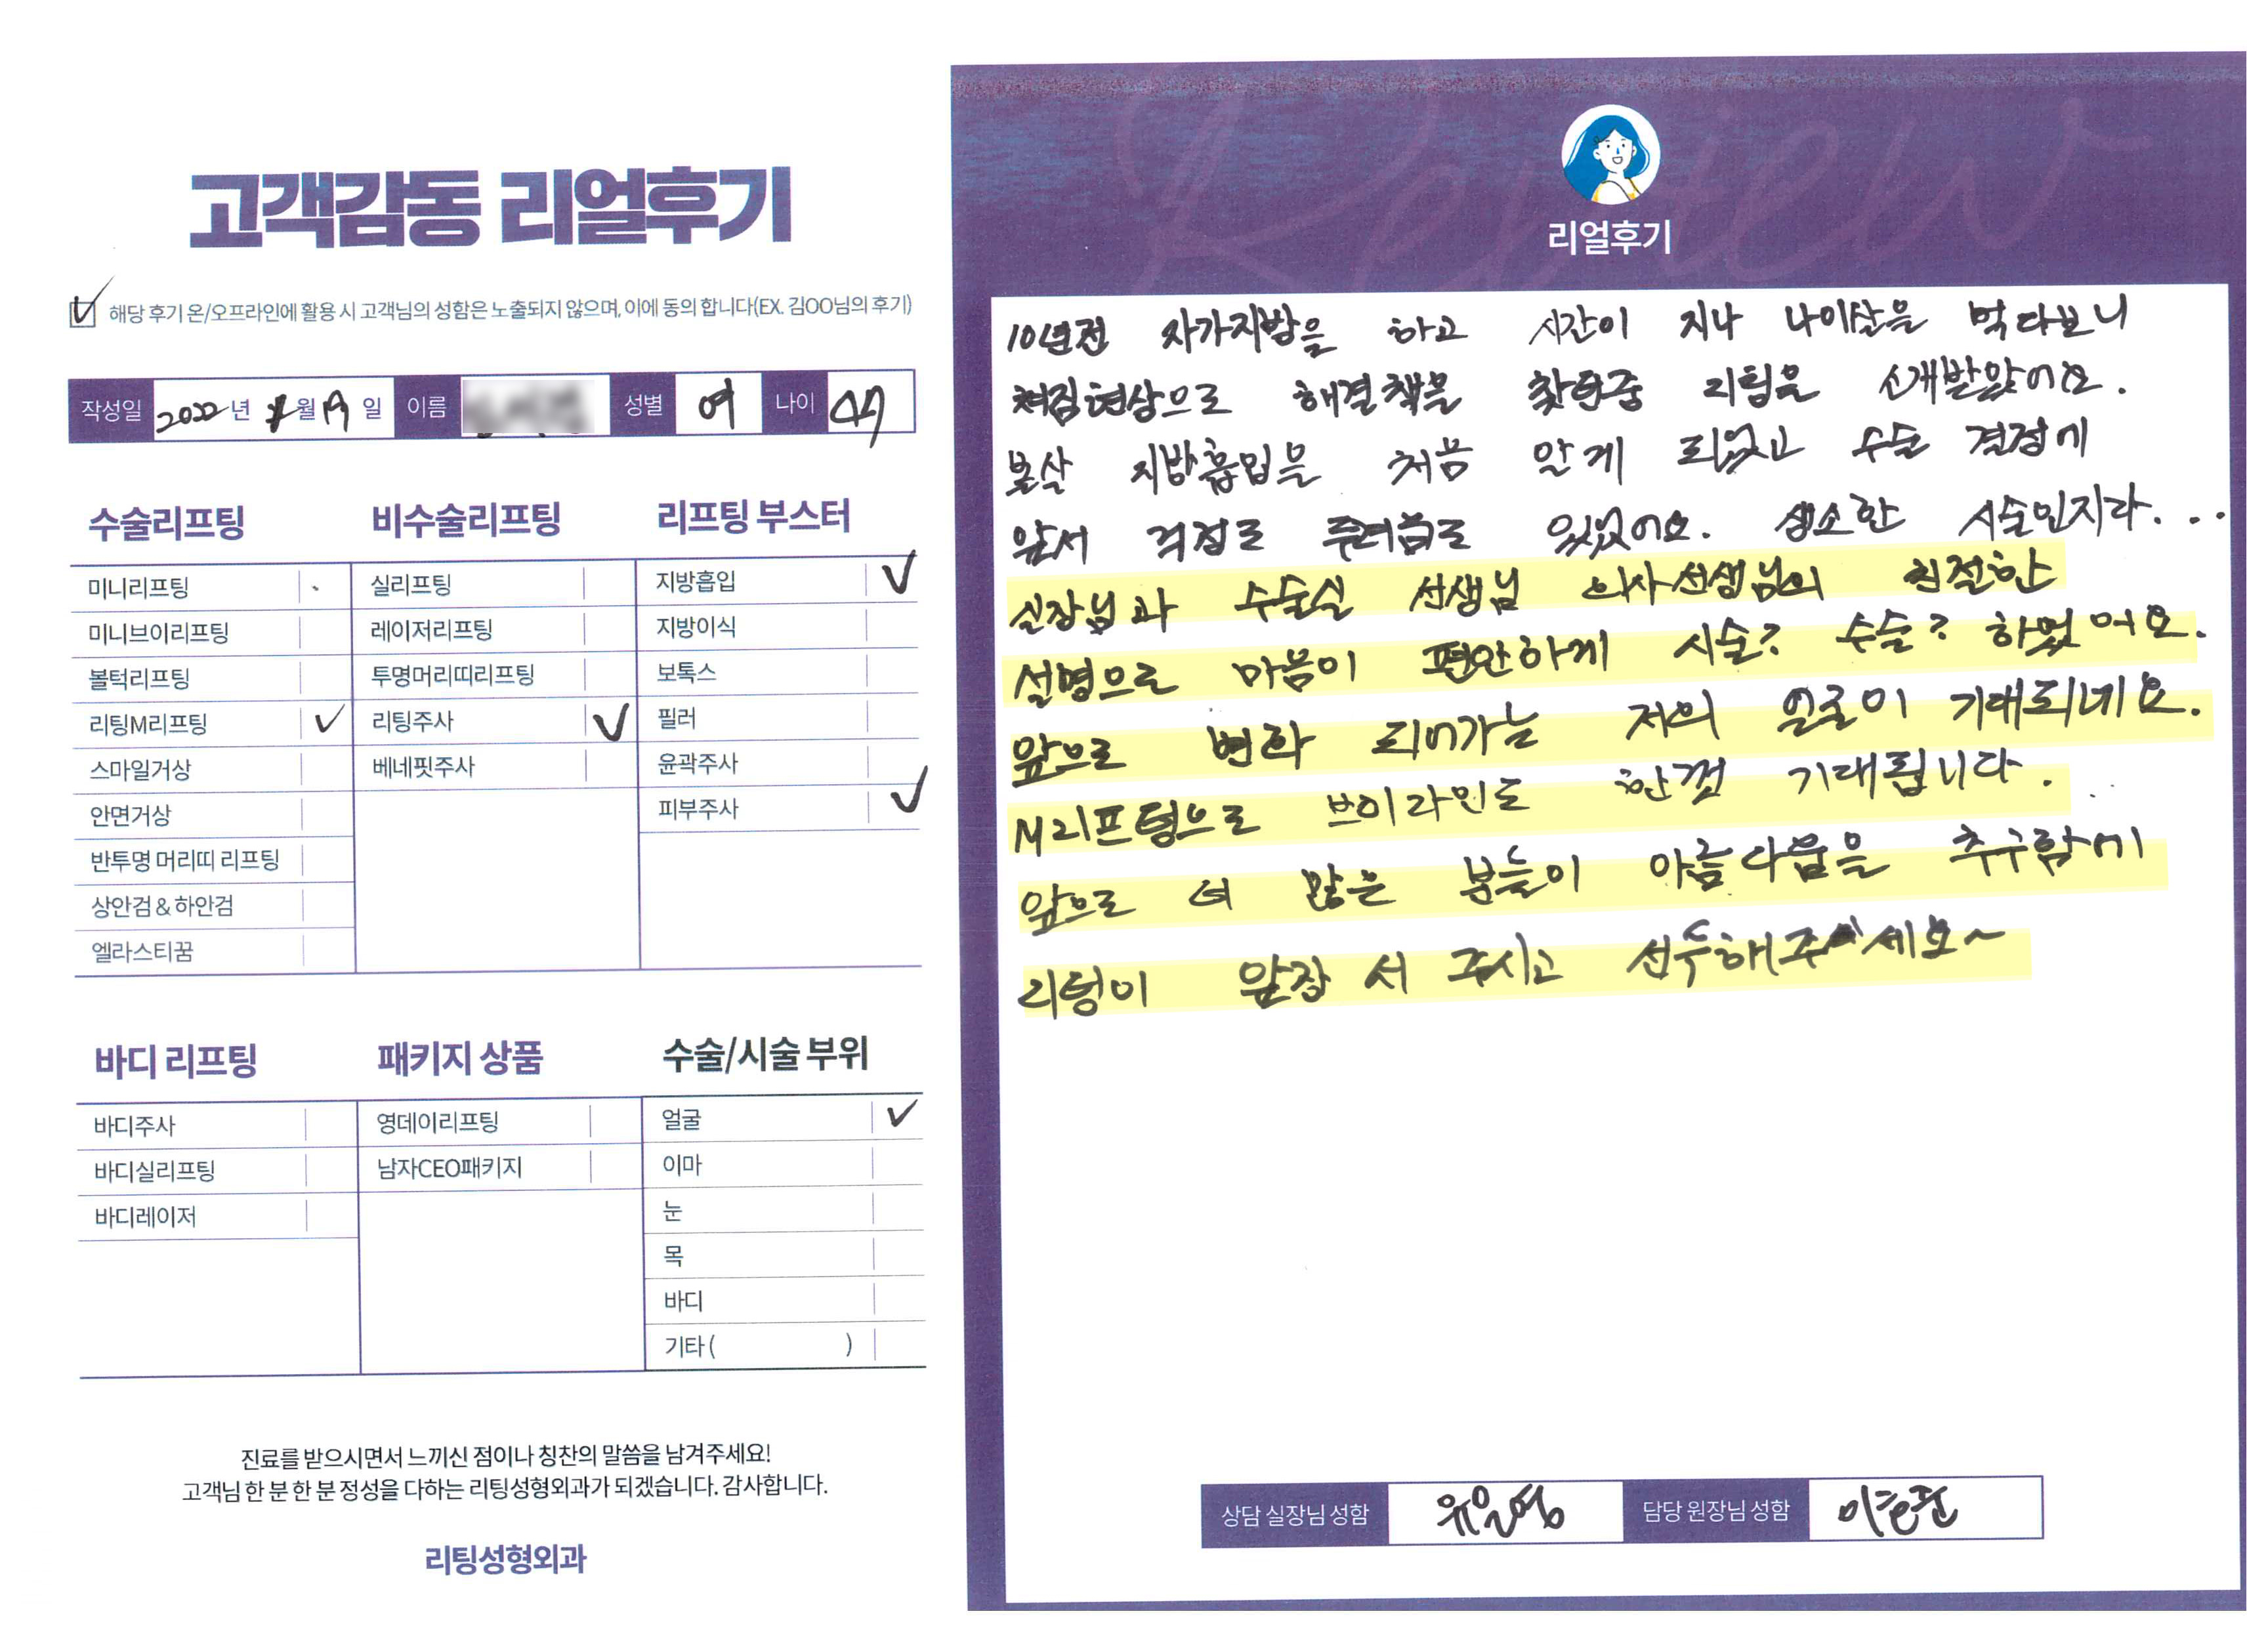 고객감동 리얼후기
해당 후기 온/오프라인에 활용 시 고객님의 성함은 노출되지 않으며, 이에 동의 합니다(EX. 김OO님의 후기)
작성일 2022년 월 19일 이름 성별 여 나이 47
수술리프팅
미니리프팅
미니브이리프팅
볼턱리프팅
리팅M리프팅
스마일거상
안면거상
반투명 머리띠 리프팅
상안검 & 하안검
엘라스티꿈
비수술리프팅
실리프팅
레이저리프팅
투명머리띠리프팅
리팅주사
베네핏주사
리프팅 부스터
지방흡입
지방이식
보톡스
필러
윤곽주사
피부주사
바디 리프팅
바디주사
바디실리프팅
바디레이저
패키지 상품
영데이리프팅
남자CEO패키지
수술/시술 부위
얼굴
이마
눈
목
바디
기타 ( )
진료를 받으시면서 느끼신 점이나 칭찬의 말씀을 남겨주세요!
고객님 한 분 한 분 정성을 다하는 리팅성형외과가 되겠습니다. 감사합니다.
리팅성형외과
Review
리얼후기
10년전 자가지방을 하고 시간이 지나 나이살을 먹다보니
쳐짐현상으로 해결책을 찾던중 리팅을 소개받았어요.
볼살 지방흡입을 처음 알게 되었고 수술 결정에
앞서 걱정도 두려움도 있었어요. 생소한 시술인지라...
실장님과 수술실 선생님 의사선생님의 친절한
설명으로 마음이 편안하게 시술? 수술? 하였어요.
앞으로 변화 되어가는 저의 얼굴이 기대되네요.
M리프팅으로 브이라인도 한껏 기대됩니다.
앞으로 더 많은 분들이 아름다움을 추구함에
리팅이 앞장 서 주시고 선두해주세요~
상담 실장님 성함 담당 원장님 성함